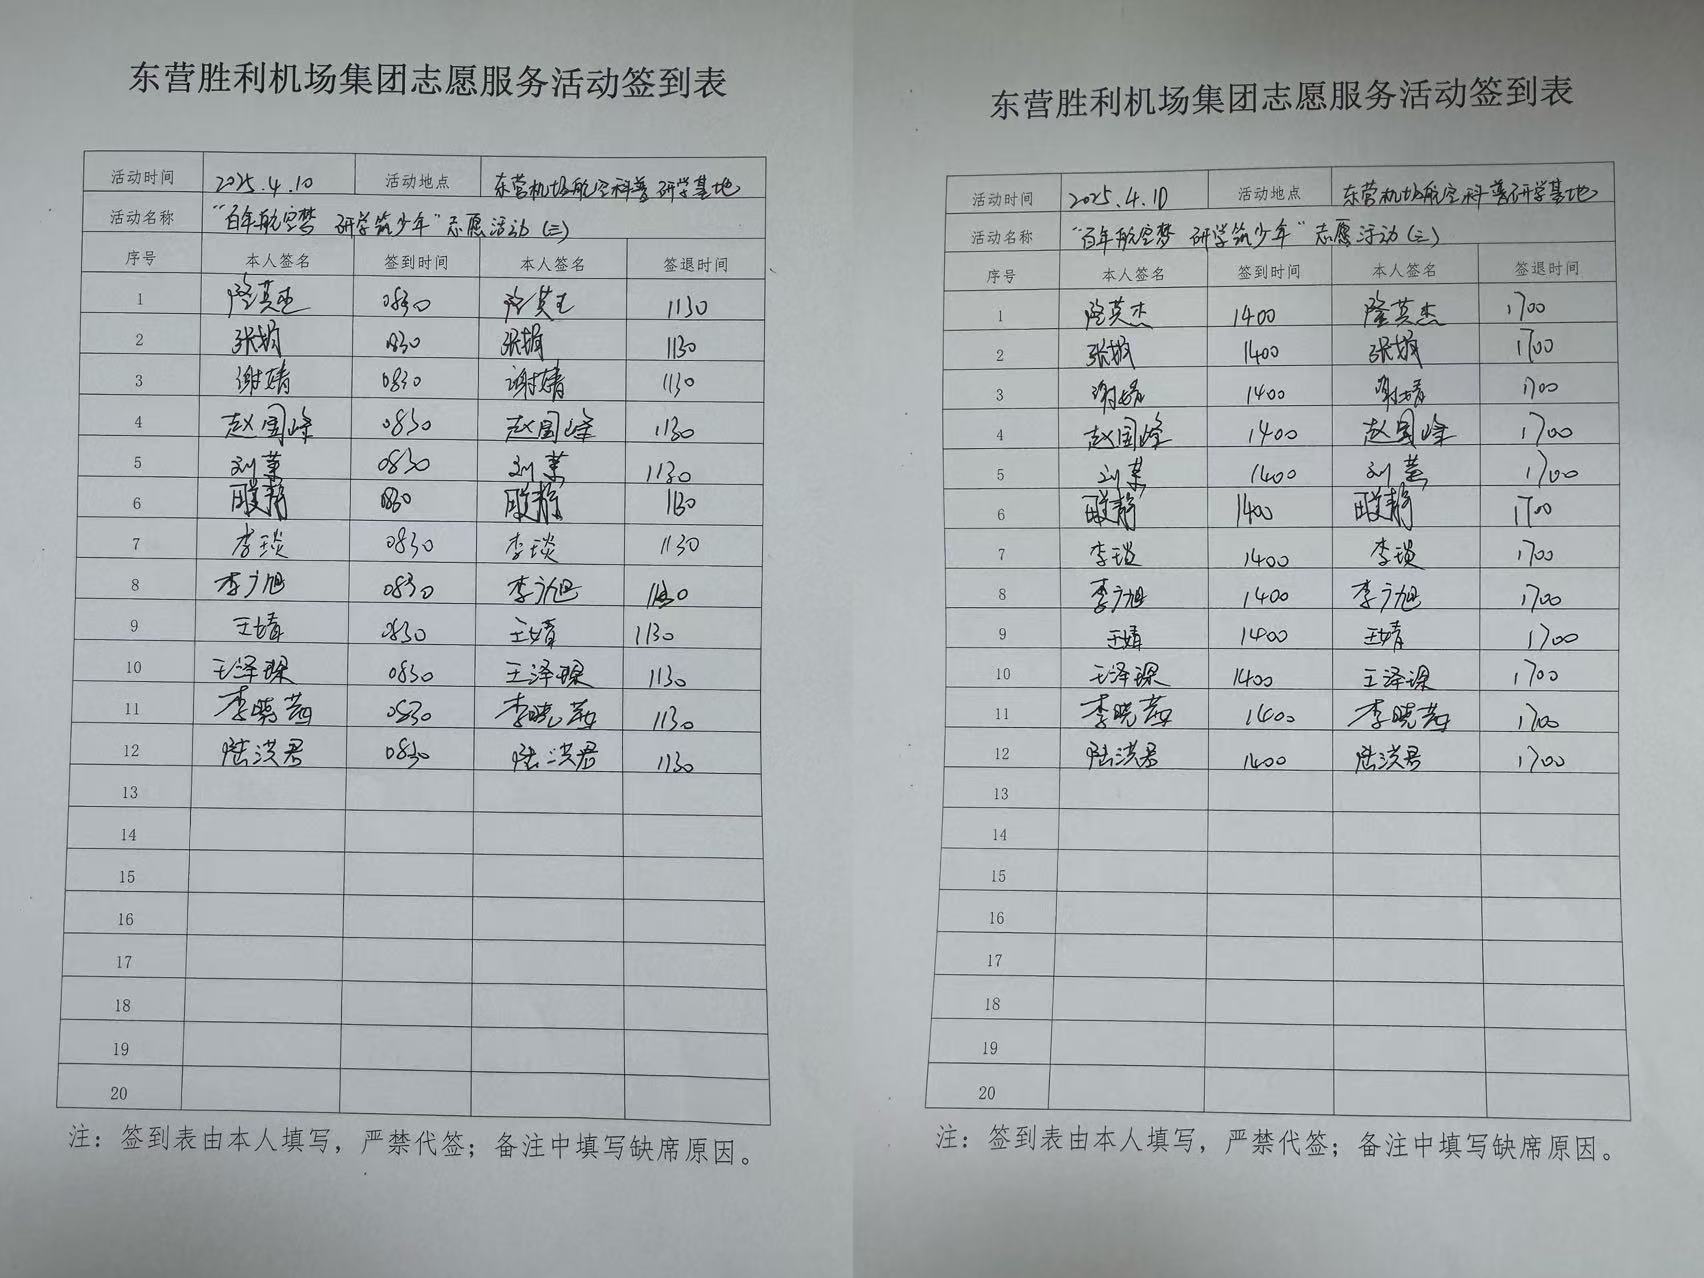 东营胜利机场集团志愿服务活动签到表
活动时间 2025.4.10 活动地点 东营机场航空科普研学基地
活动名称 “百年航空梦 研学筑少年”志愿活动(三)
序号 本人签名 签到时间 本人签名 签退时间
1 隆英杰 0830 1130
2 张娟 0830 张娟 1130
3 谢婧 0830 谢婧 1130
4 赵国峰 0830 赵国峰 1130
5 刘 0830 刘 1130
6 静 0830 静 1130
7 李琰 0830 李琰 1130
8 李广旭 0830 李广旭 1130
9 王婧 0830 王婧 1130
10 王泽琛 0830 王泽琛 1130
11 李晓茹 0830 李晓茹 1130
12 陆洪君 0830 陆洪君 1130
13
14
15
16
17
18
19
20
注：签到表由本人填写，严禁代签；备注中填写缺席原因。
东营胜利机场集团志愿服务活动签到表
活动时间 2025.4.10 活动地点 东营机场航空科普研学基地
活动名称 “百年航空梦 研学筑少年”志愿活动(三)
序号 本人签名 签到时间 本人签名 签退时间
1 隆英杰 1400 隆英杰 1700
2 张娟 1400 张娟 1700
3 谢婧 1400 谢婧 1700
4 赵国峰 1400 赵国峰 1700
5 刘 1400 刘 1700
6 静 1400 静 1700
7 李琰 1400 李琰 1700
8 李广旭 1400 李广旭 1700
9 王婧 1400 王婧 1700
10 王泽琛 1400 王泽琛 1700
11 李晓茹 1400 李晓茹 1700
12 陆洪君 1400 陆洪君 1700
13
14
15
16
17
18
19
20
注：签到表由本人填写，严禁代签；备注中填写缺席原因。